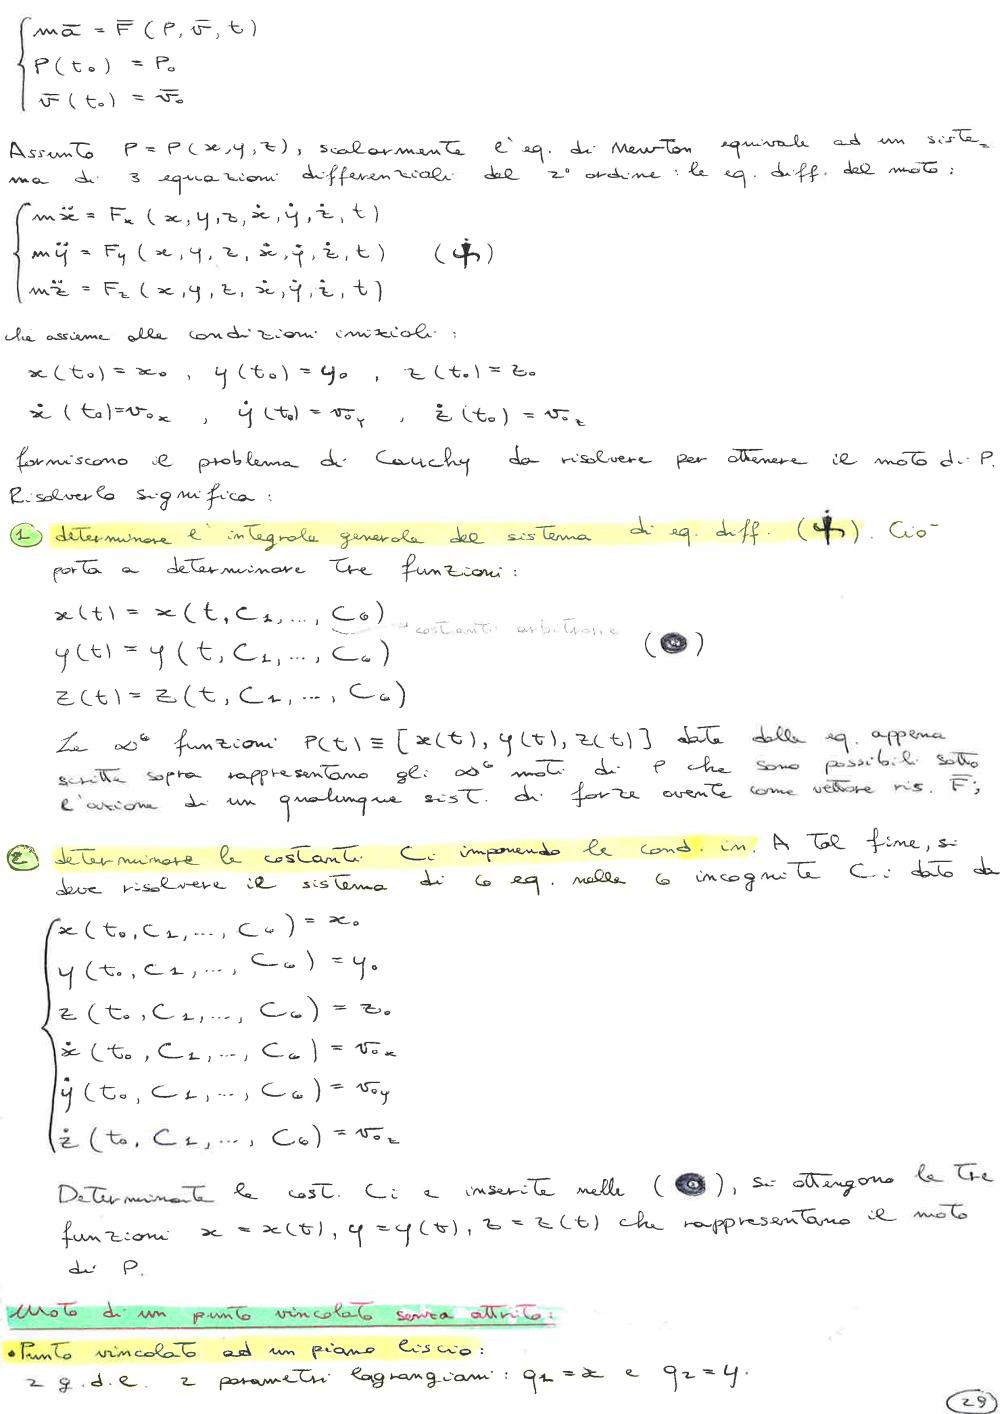 m ā = F̄ (P, v̄, t)
P(t₀) = P₀
v̄(t₀) = v̄₀
Assunto P = P(x,y,z), scalarmente l'eq. di Newton equivale ad un siste=
ma di 3 equazioni differenziali del 2° ordine: le eq. diff. del moto:
mẍ = Fx (x,y,z,ẋ,ẏ,ż,t)
mÿ = Fy (x,y,z,ẋ,ẏ,ż,t) (ψ)
mz̈ = Fz (x,y,z,ẋ,ẏ,ż,t)
che assieme alle condizioni iniziali:
x(t₀) = x₀ , y(t₀) = y₀ , z(t₀) = z₀
ẋ(t₀) = v₀x , ẏ(t₀) = v₀y , ż(t₀) = v₀z
forniscono il problema di Cauchy da risolvere per ottenere il moto di P.
Risolverlo significa:
1 determinare l'integrale generale del sistema di eq. diff. (ψ). Ciò
porta a determinare tre funzioni:
x(t) = x(t, C1, ..., C6) → costanti arbitrarie
y(t) = y(t, C1, ..., C6) (◉)
z(t) = z(t, C1, ..., C6)
Le ∞⁶ funzioni P(t) ≡ [x(t), y(t), z(t)] date dalle eq. appena
scritte sopra rappresentano gli ∞⁶ moti di P che sono possibili sotto
l'azione di un qualunque sist. di forze avente come vettore ris. F̄;
2 determinare le costanti Ci imponendo le cond. in. A tal fine, si
deve risolvere il sistema di 6 eq. nelle 6 incognite Ci dato da
x(t₀, C1, ..., C6) = x₀
y(t₀, C1, ..., C6) = y₀
z(t₀, C1, ..., C6) = z₀
ẋ(t₀, C1, ..., C6) = v₀x
ẏ(t₀, C1, ..., C6) = v₀y
ż(t₀, C1, ..., C6) = v₀z
Determinate le cost. Ci e inserite nelle (◉), si ottengono le tre
funzioni x = x(t), y = y(t), z = z(t) che rappresentano il moto
di P.
Moto di un punto vincolato senza attrito:
• Punto vincolato ad un piano liscio:
2 g.d.l. 2 parametri lagrangiani: q1 = x e q2 = y.
29